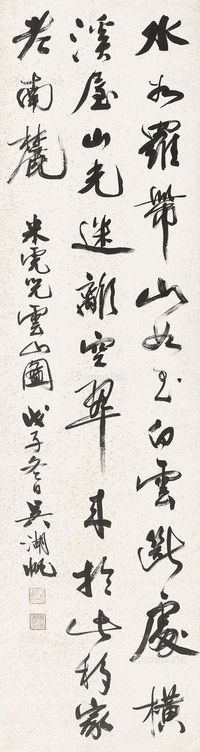 水如羅帶山如玉白雲斷處橫
溪屋山光迷離空翠來於此移家
老南麓
米虎兒雲山圖 戊子冬日吳湖帆